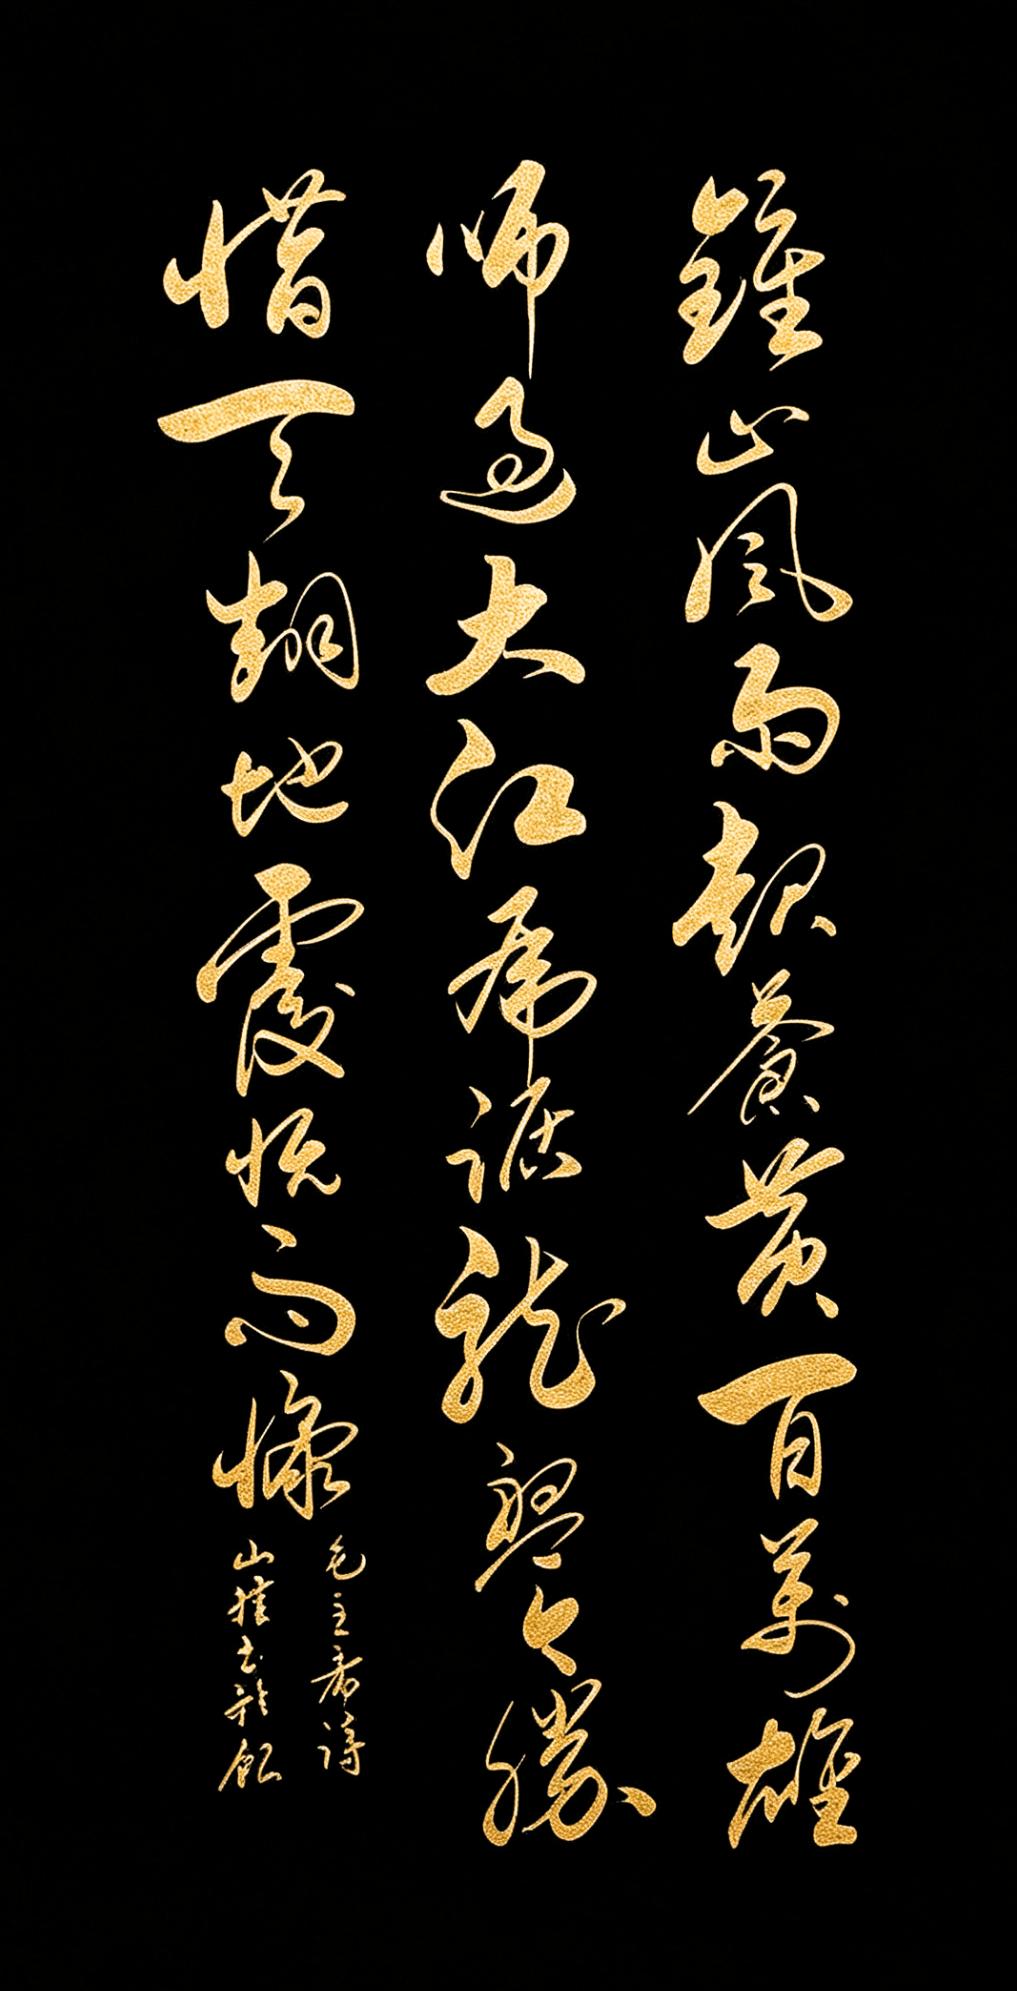 鍾山風雨起蒼黃百萬雄
師過大江虎踞龍盤今勝
惜天翻地覆慨而慷
毛主席詩
山